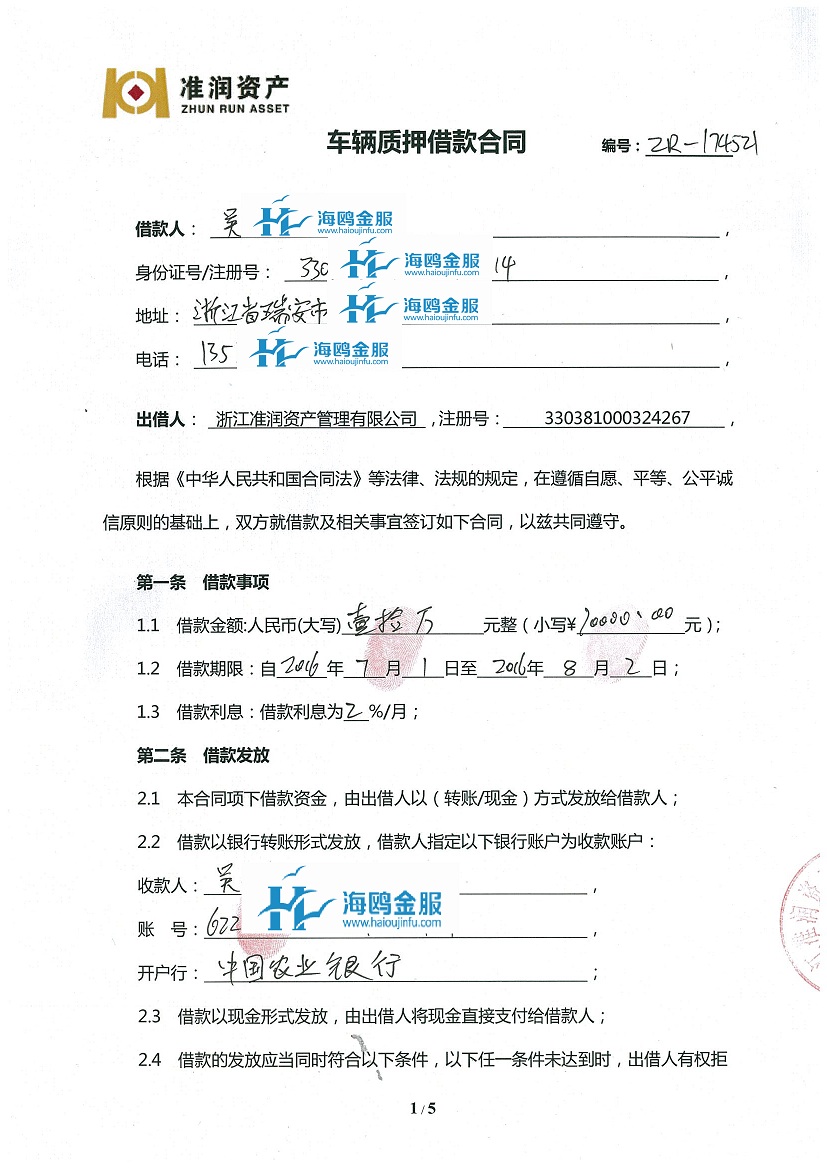 准润资产
ZHUN RUN ASSET
车辆质押借款合同 编号：ZR-174521
借款人： 吴 海鸥金服 www.haioujinfu.com ，
身份证号/注册号： 330 海鸥金服 www.haioujinfu.com 14 ，
地址： 浙江省瑞安市 海鸥金服 www.haioujinfu.com ，
电话： 135 海鸥金服 www.haioujinfu.com ，
出借人： 浙江准润资产管理有限公司 ，注册号： 330381000324267 ，
根据《中华人民共和国合同法》等法律、法规的规定，在遵循自愿、平等、公平诚
信原则的基础上，双方就借款及相关事宜签订如下合同，以兹共同遵守。
第一条 借款事项
1.1 借款金额:人民币(大写) 壹拾万 元整（小写¥ 100000.00 元）；
1.2 借款期限：自 2016 年 7 月 1 日至 2016 年 8 月 2 日；
1.3 借款利息：借款利息为 2 %/月；
第二条 借款发放
2.1 本合同项下借款资金，由出借人以（转账/现金）方式发放给借款人；
2.2 借款以银行转账形式发放，借款人指定以下银行账户为收款账户：
收款人： 吴 ，
账 号： 622 海鸥金服 www.haioujinfu.com ，
开户行： 中国农业银行 ；
2.3 借款以现金形式发放，由出借人将现金直接支付给借款人；
2.4 借款的发放应当同时符合以下条件，以下任一条件未达到时，出借人有权拒
1 / 5